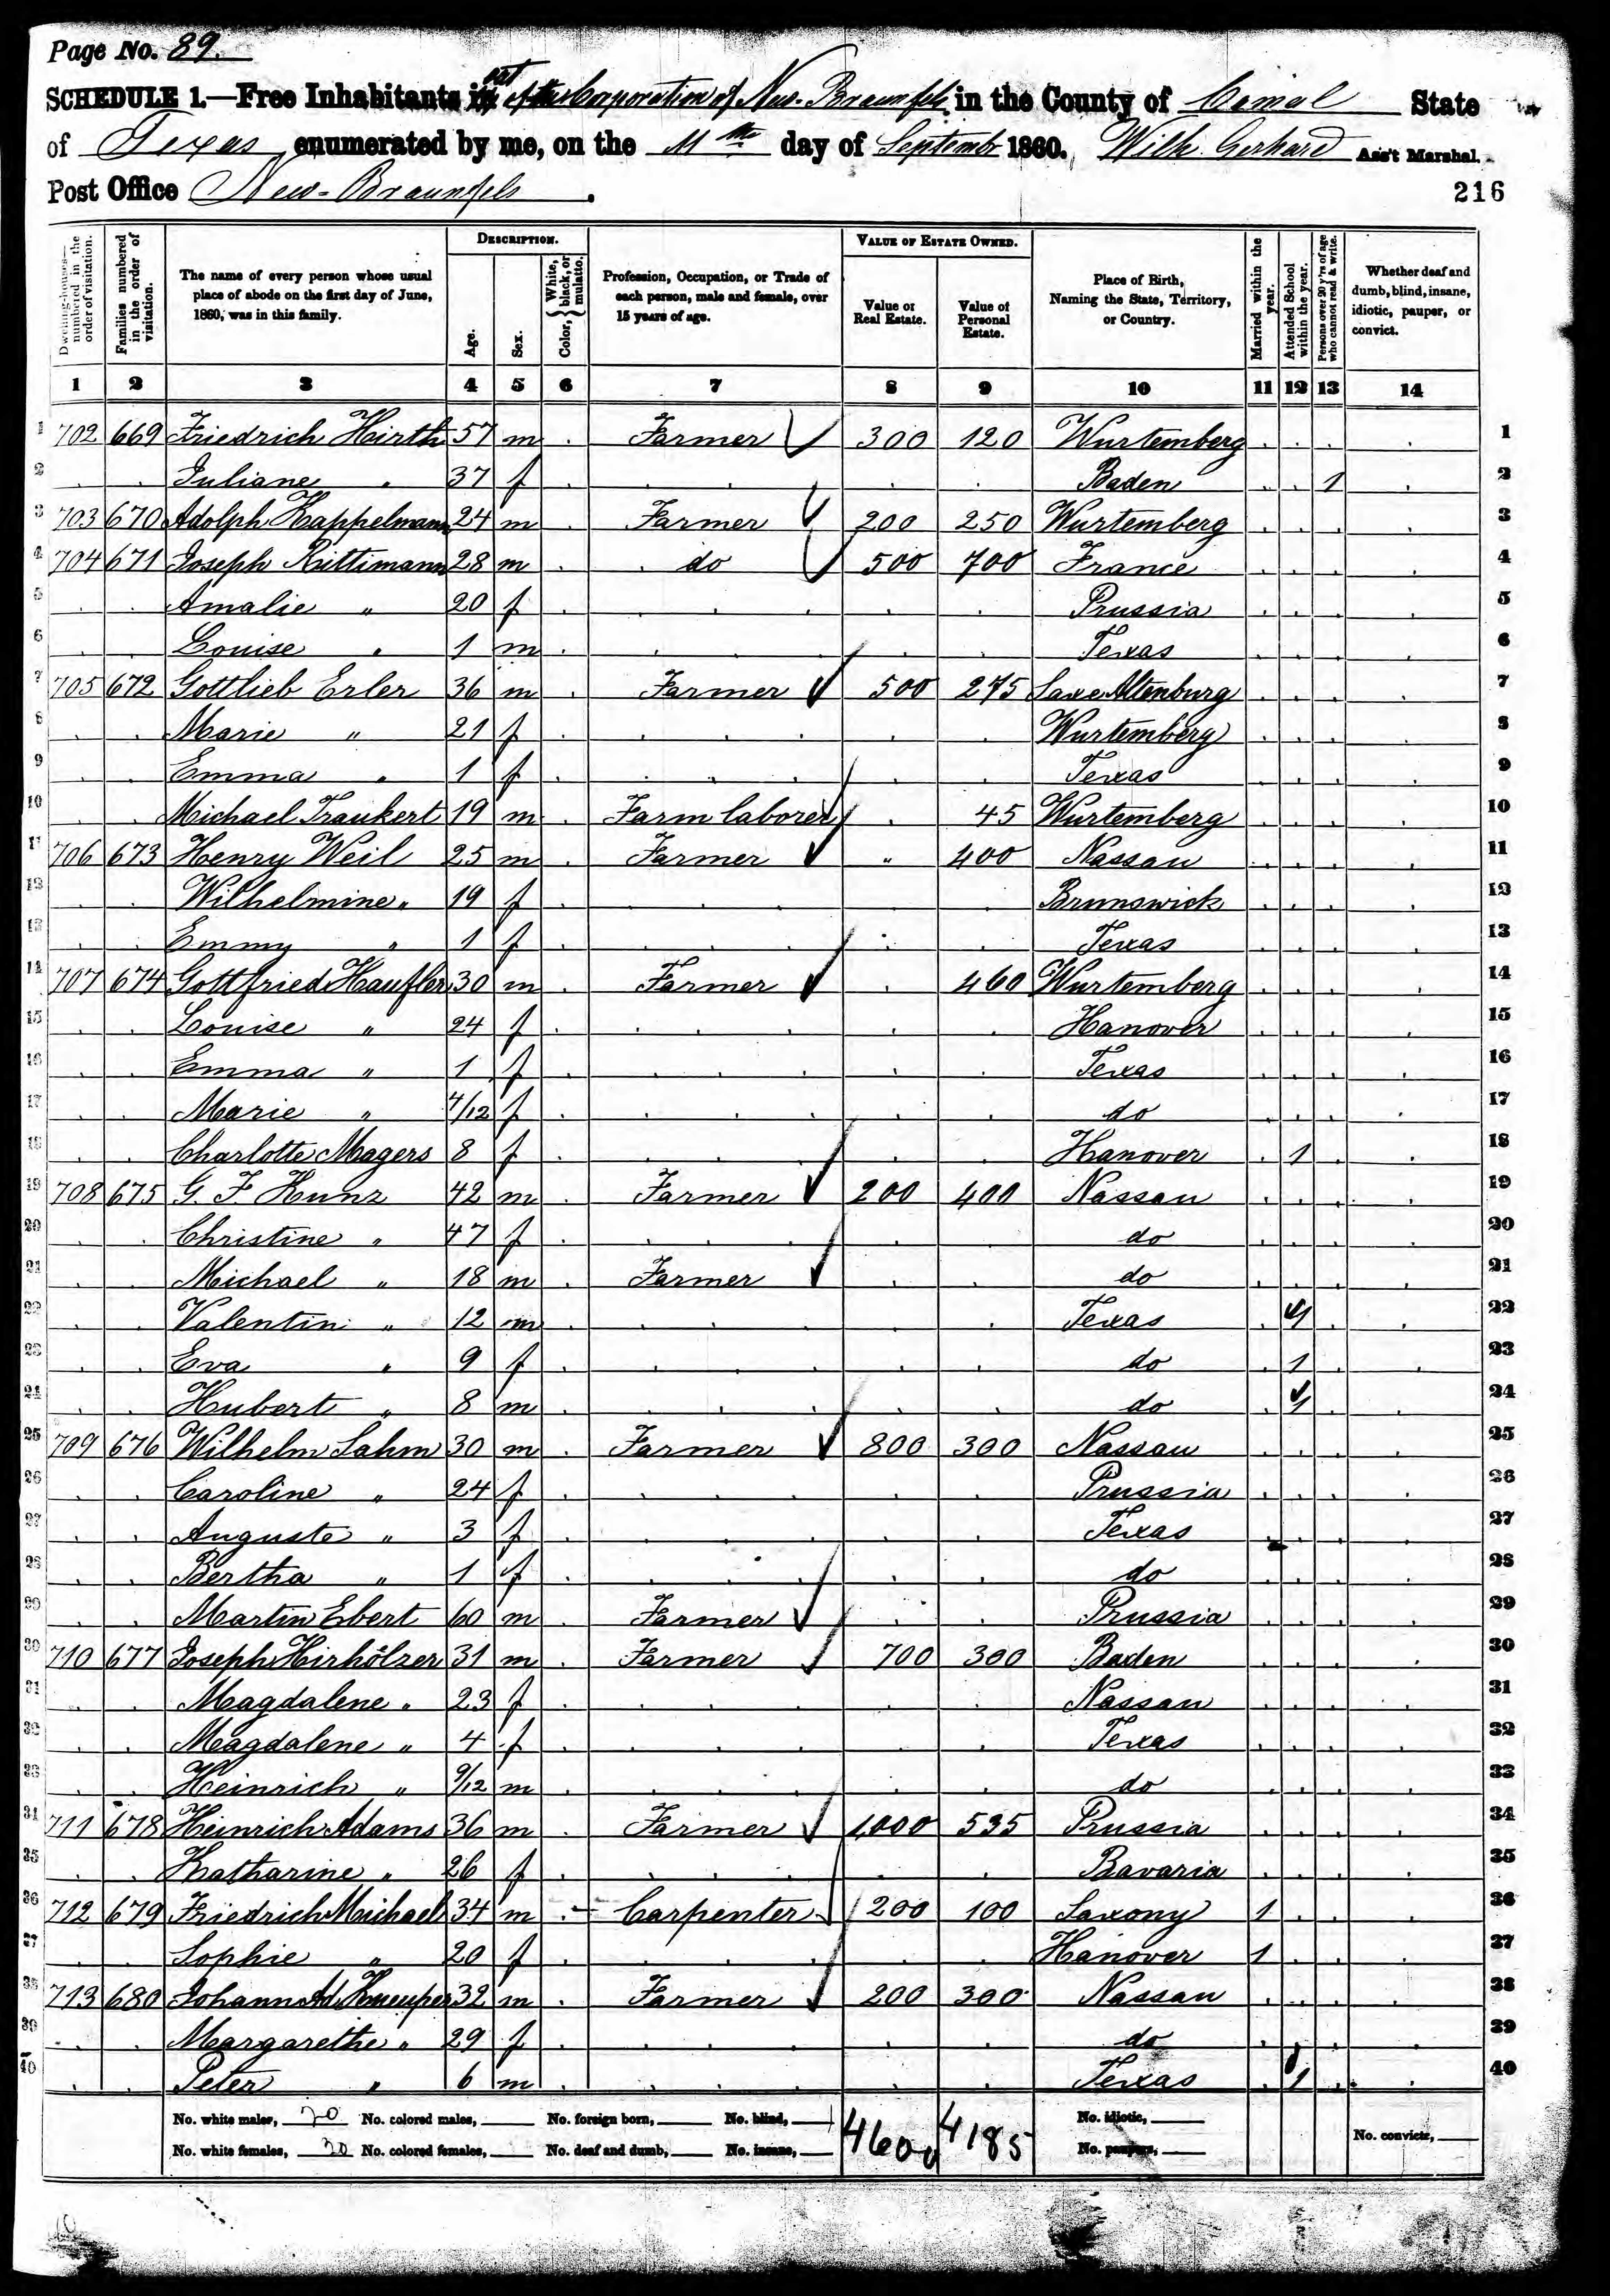 Page No. 89.
SCHEDULE 1.—Free Inhabitants in out of the Corporation of New-Braunfels in the County of Comal State
of Texas enumerated by me, on the 11th day of Septemb 1860. Wilh. Gerhard Ass't Marshal.
Post Office New-Braunfels. 216
Dwelling-houses—numbered in the order of visitation.
Families numbered in the order of visitation.
The name of every person whose usual place of abode on the first day of June, 1860, was in this family.
DESCRIPTION.
Age.
Sex.
Color, { White, black, or mulatto.
Profession, Occupation, or Trade of each person, male and female, over 15 years of age.
VALUE OF ESTATE OWNED.
Value of Real Estate.
Value of Personal Estate.
Place of Birth, Naming the State, Territory, or Country.
Married within the year.
Attended School within the year.
Persons over 20 y'rs of age who cannot read & write.
Whether deaf and dumb, blind, insane, idiotic, pauper, or convict.
1 2 3 4 5 6 7 8 9 10 11 12 13 14
1 702 669 Friedrich Hirth 57 m Farmer 300 120 Wurtemberg 1
2 Juliane " 37 f Baden 1 2
3 703 670 Adolph Kappelmann 24 m Farmer 200 250 Wurtemberg 3
4 704 671 Joseph Rittimann 28 m do 500 700 France 4
5 Amalie " 20 f Prussia 5
6 Louise " 1 m Texas 6
7 705 672 Gottlieb Erler 36 m Farmer 500 275 Saxe Altenburg 7
8 Marie " 21 f Wurtemberg 8
9 Emma " 1 f Texas 9
10 Michael Traukert 19 m Farm laborer 45 Wurtemberg 10
11 706 673 Henry Weil 25 m Farmer " 400 Nassau 11
12 Wilhelmine " 19 f Brunswick 12
13 Emmy " 1 f Texas 13
14 707 674 Gottfried Haufler 30 m Farmer 460 Wurtemberg 14
15 Louise " 24 f Hanover 15
16 Emma " 1 f Texas 16
17 Marie " 4/12 f do 17
18 Charlotte Magers 8 f Hanover 1 18
19 708 675 G. F. Kunz 42 m Farmer 200 400 Nassau 19
20 Christine " 47 f do 20
21 Michael " 18 m Farmer do 21
22 Valentin " 12 m Texas 1 22
23 Eva " 9 f do 1 23
24 Hubert " 8 m do 1 24
25 709 676 Wilhelm Sahm 30 m Farmer 800 300 Nassau 25
26 Caroline " 24 f Prussia 26
27 Auguste " 3 f Texas 27
28 Bertha " 1 f do 28
29 Martin Ebert 60 m Farmer Prussia 29
30 710 677 Joseph Hirhölzer 31 m Farmer 700 300 Baden 30
31 Magdalene " 23 f Nassau 31
32 Magdalene " 4 f Texas 32
33 Heinrich " 9/12 m do 33
34 711 678 Heinrich Adams 36 m Farmer 1,000 535 Prussia 34
35 Katharine " 26 f Bavaria 35
36 712 679 Friedrich Michael 34 m Carpenter 200 100 Saxony 1 36
37 Sophie " 20 f Hanover 1 37
38 713 680 Johann Ad. Kneuper 32 m Farmer 200 300 Nassau 38
39 Margarethe " 29 f do 39
40 Peter " 6 m Texas 1 40
No. white males, 20 No. colored males, No. foreign born, No. blind, 4600 4185 No. idiotic,
No. white females, 20 No. colored females, No. deaf and dumb, No. insane, No. paupers, No. convicts,